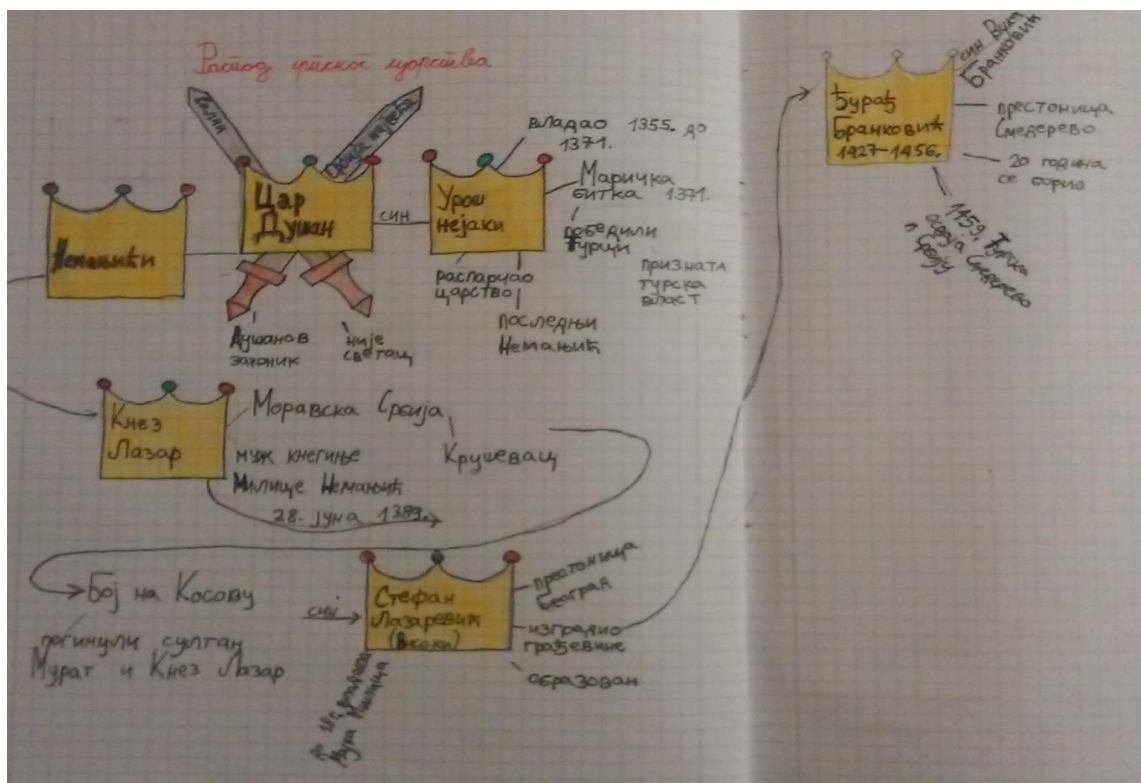 Распад српског царства
Силни
Немањићи
Цар
Душан
Душанов
законик
није
светац
син
Урош
нејаки
владао 1355. до
1371.
Маричка
битка 1371.
победили
Турци
призната
турска
власт
распарчао
царство
последњи
Немањић
Кнез
Лазар
Моравска Србија
Крушевац
муж кнегиње
Милице Немањић
28. јуна 1389.
Бој на Косову
погинули султан
Мурат и Кнез Лазар
син
Стефан
Лазаревић
(Високи)
престоница
Београд
изградио
грађевине
образован
до 18 г. владала
Милица
Ђурађ
Бранковић
1427-1456.
син Вука
Бранковић
престоница
Смедерево
20 година
се борио
1459. Турска
осваја Смедерево
и Србију